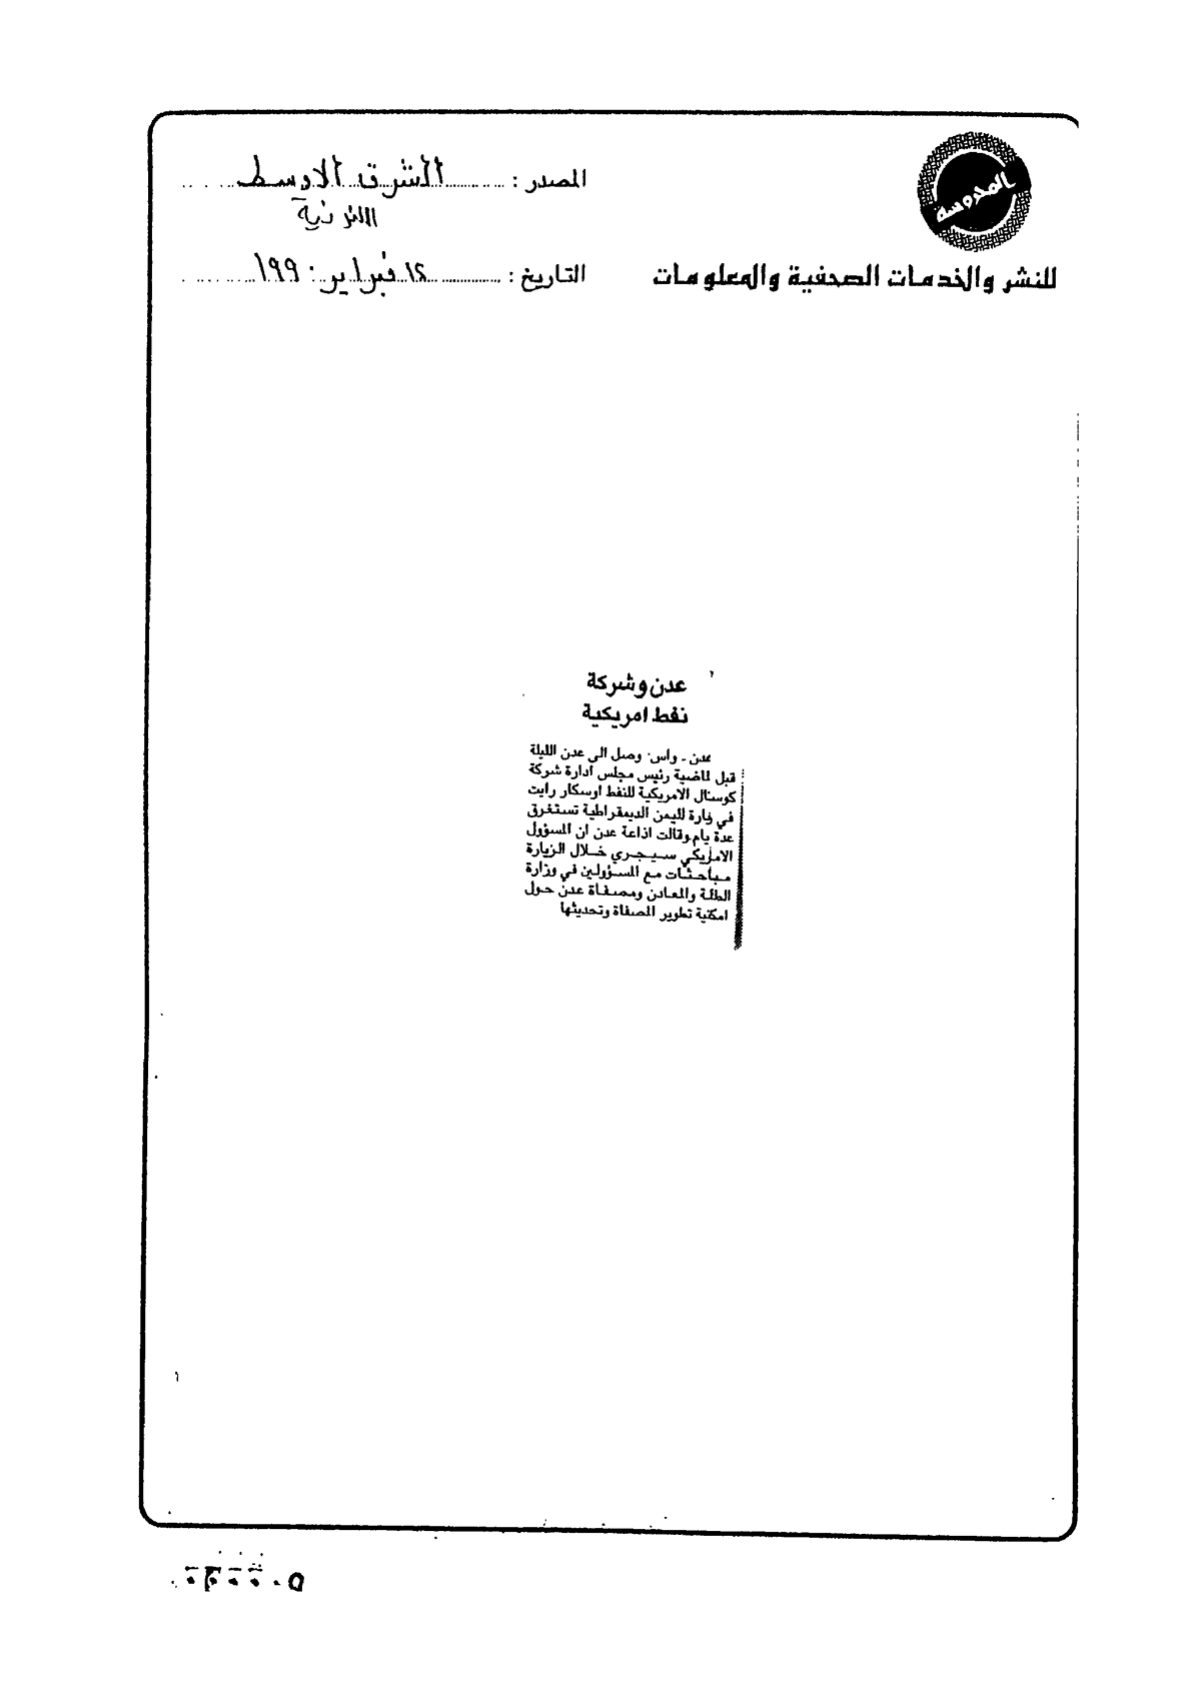 المحروسة
للنشر والخدمات الصحفية والمعلومات
المصدر : الشرق الاوسط
التاريخ : ١٢ فبراير ١٩٩٠
عدن وشركة
نفط امريكية
عدن - واس: وصل الى عدن الليلة
قبل الماضية رئيس مجلس ادارة شركة
كوستال الامريكية للنفط اوسكار رايت
في زيارة لليمن الديمقراطية تستغرق
عدة ايام وقالت اذاعة عدن ان المسؤول
الامريكي سيجري خلال الزيارة
مباحثات مع المسؤولين في وزارة
الطاقة والمعادن ومصفاة عدن حول
امكانية تطوير المصفاة وتحديثها